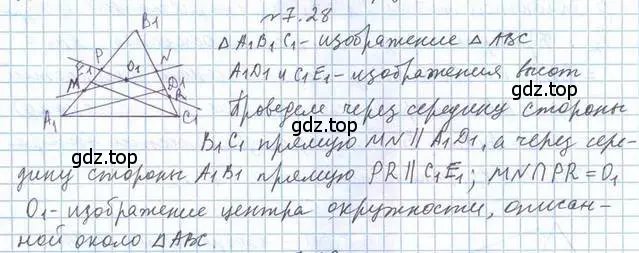 №7.28
△A₁B₁C₁ - изображение △ABC
A₁D₁ и C₁E₁ - изображения высот
Проведем через середину стороны
B₁C₁ прямую MN ∥ A₁D₁, а через сере-
дину стороны A₁B₁ прямую PR ∥ C₁E₁; MN∩PR = O₁
O₁ - изображение центра окружности, описан-
ной около △ABC.
B₁
P
N
E₁
O₁
M
D₁
R
A₁
C₁
gdz.top
gdz.top
gdz.top
gdz.top